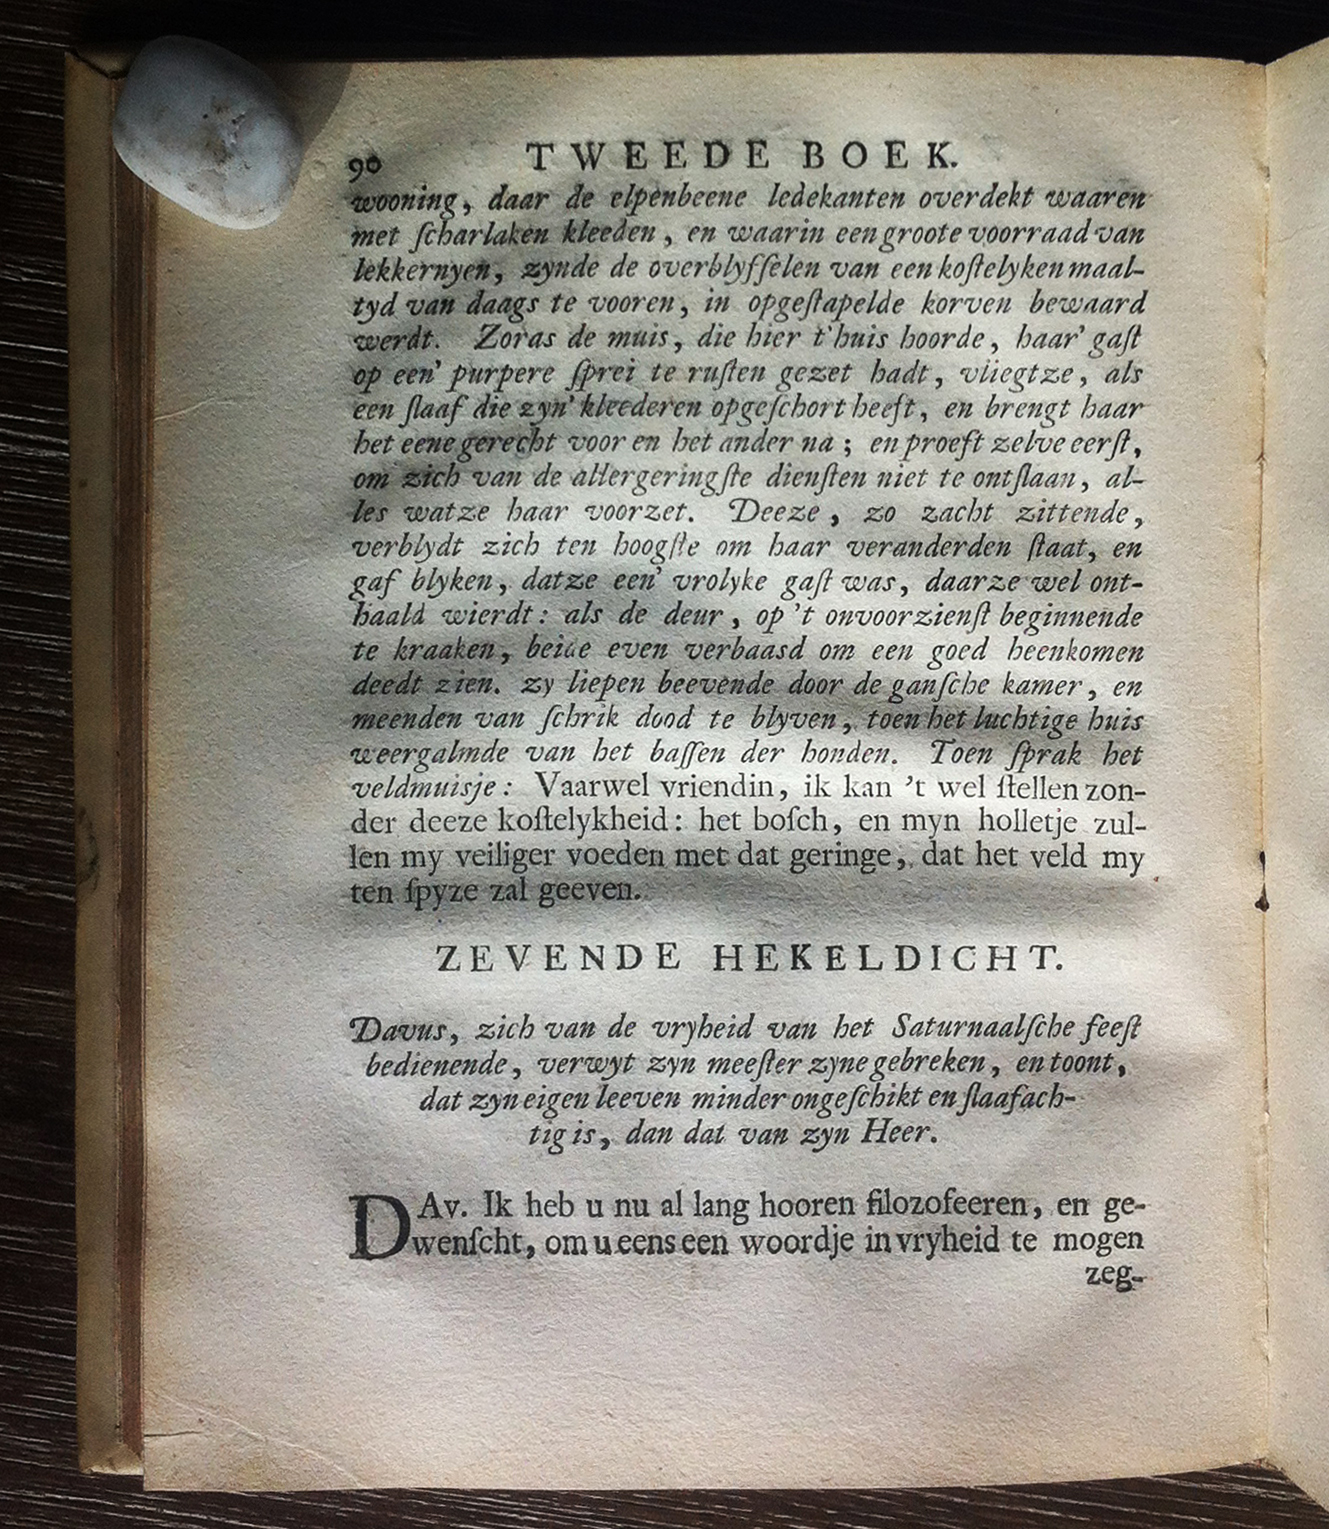 90 TWEEDE BOEK.
wooning, daar de elpenbeene ledekanten overdekt waaren
met ſcharlaken kleeden, en waarin een groote voorraad van
lekkernyen, zynde de overblyfſelen van een koſtelyken maal-
tyd van daags te vooren, in opgeſtapelde korven bewaard
werdt. Zoras de muis, die hier t'huis hoorde, haar' gaſt
op een' purpere ſprei te ruſten gezet hadt, vliegtze, als
een ſlaaf die zyn' kleederen opgeſchort heeft, en brengt haar
het eene gerecht voor en het ander na; en proeft zelve eerſt,
om zich van de allergeringſte dienſten niet te ontſlaan, al-
les watze haar voorzet. Deeze, zo zacht zittende,
verblydt zich ten hoogſte om haar veranderden ſtaat, en
gaf blyken, datze een' vrolyke gaſt was, daarze wel ont-
haald wierdt: als de deur, op 't onvoorzienſt beginnende
te kraaken, beide even verbaasd om een goed heenkomen
deedt zien. zy liepen beevende door de ganſche kamer, en
meenden van ſchrik dood te blyven, toen het luchtige huis
weergalmde van het baſſen der honden. Toen ſprak het
veldmuisje: Vaarwel vriendin, ik kan 't wel ſtellen zon-
der deeze koſtelykheid: het boſch, en myn holletje zul-
len my veiliger voeden met dat geringe, dat het veld my
ten ſpyze zal geeven.
ZEVENDE HEKELDICHT.
Davus, zich van de vryheid van het Saturnaalſche feeſt
bedienende, verwyt zyn meeſter zyne gebreken, en toont,
dat zyn eigen leeven minder ongeſchikt en ſlaafach-
tig is, dan dat van zyn Heer.
DAv. Ik heb u nu al lang hooren filozofeeren, en ge-
wenſcht, om u eens een woordje in vryheid te mogen
zeg-